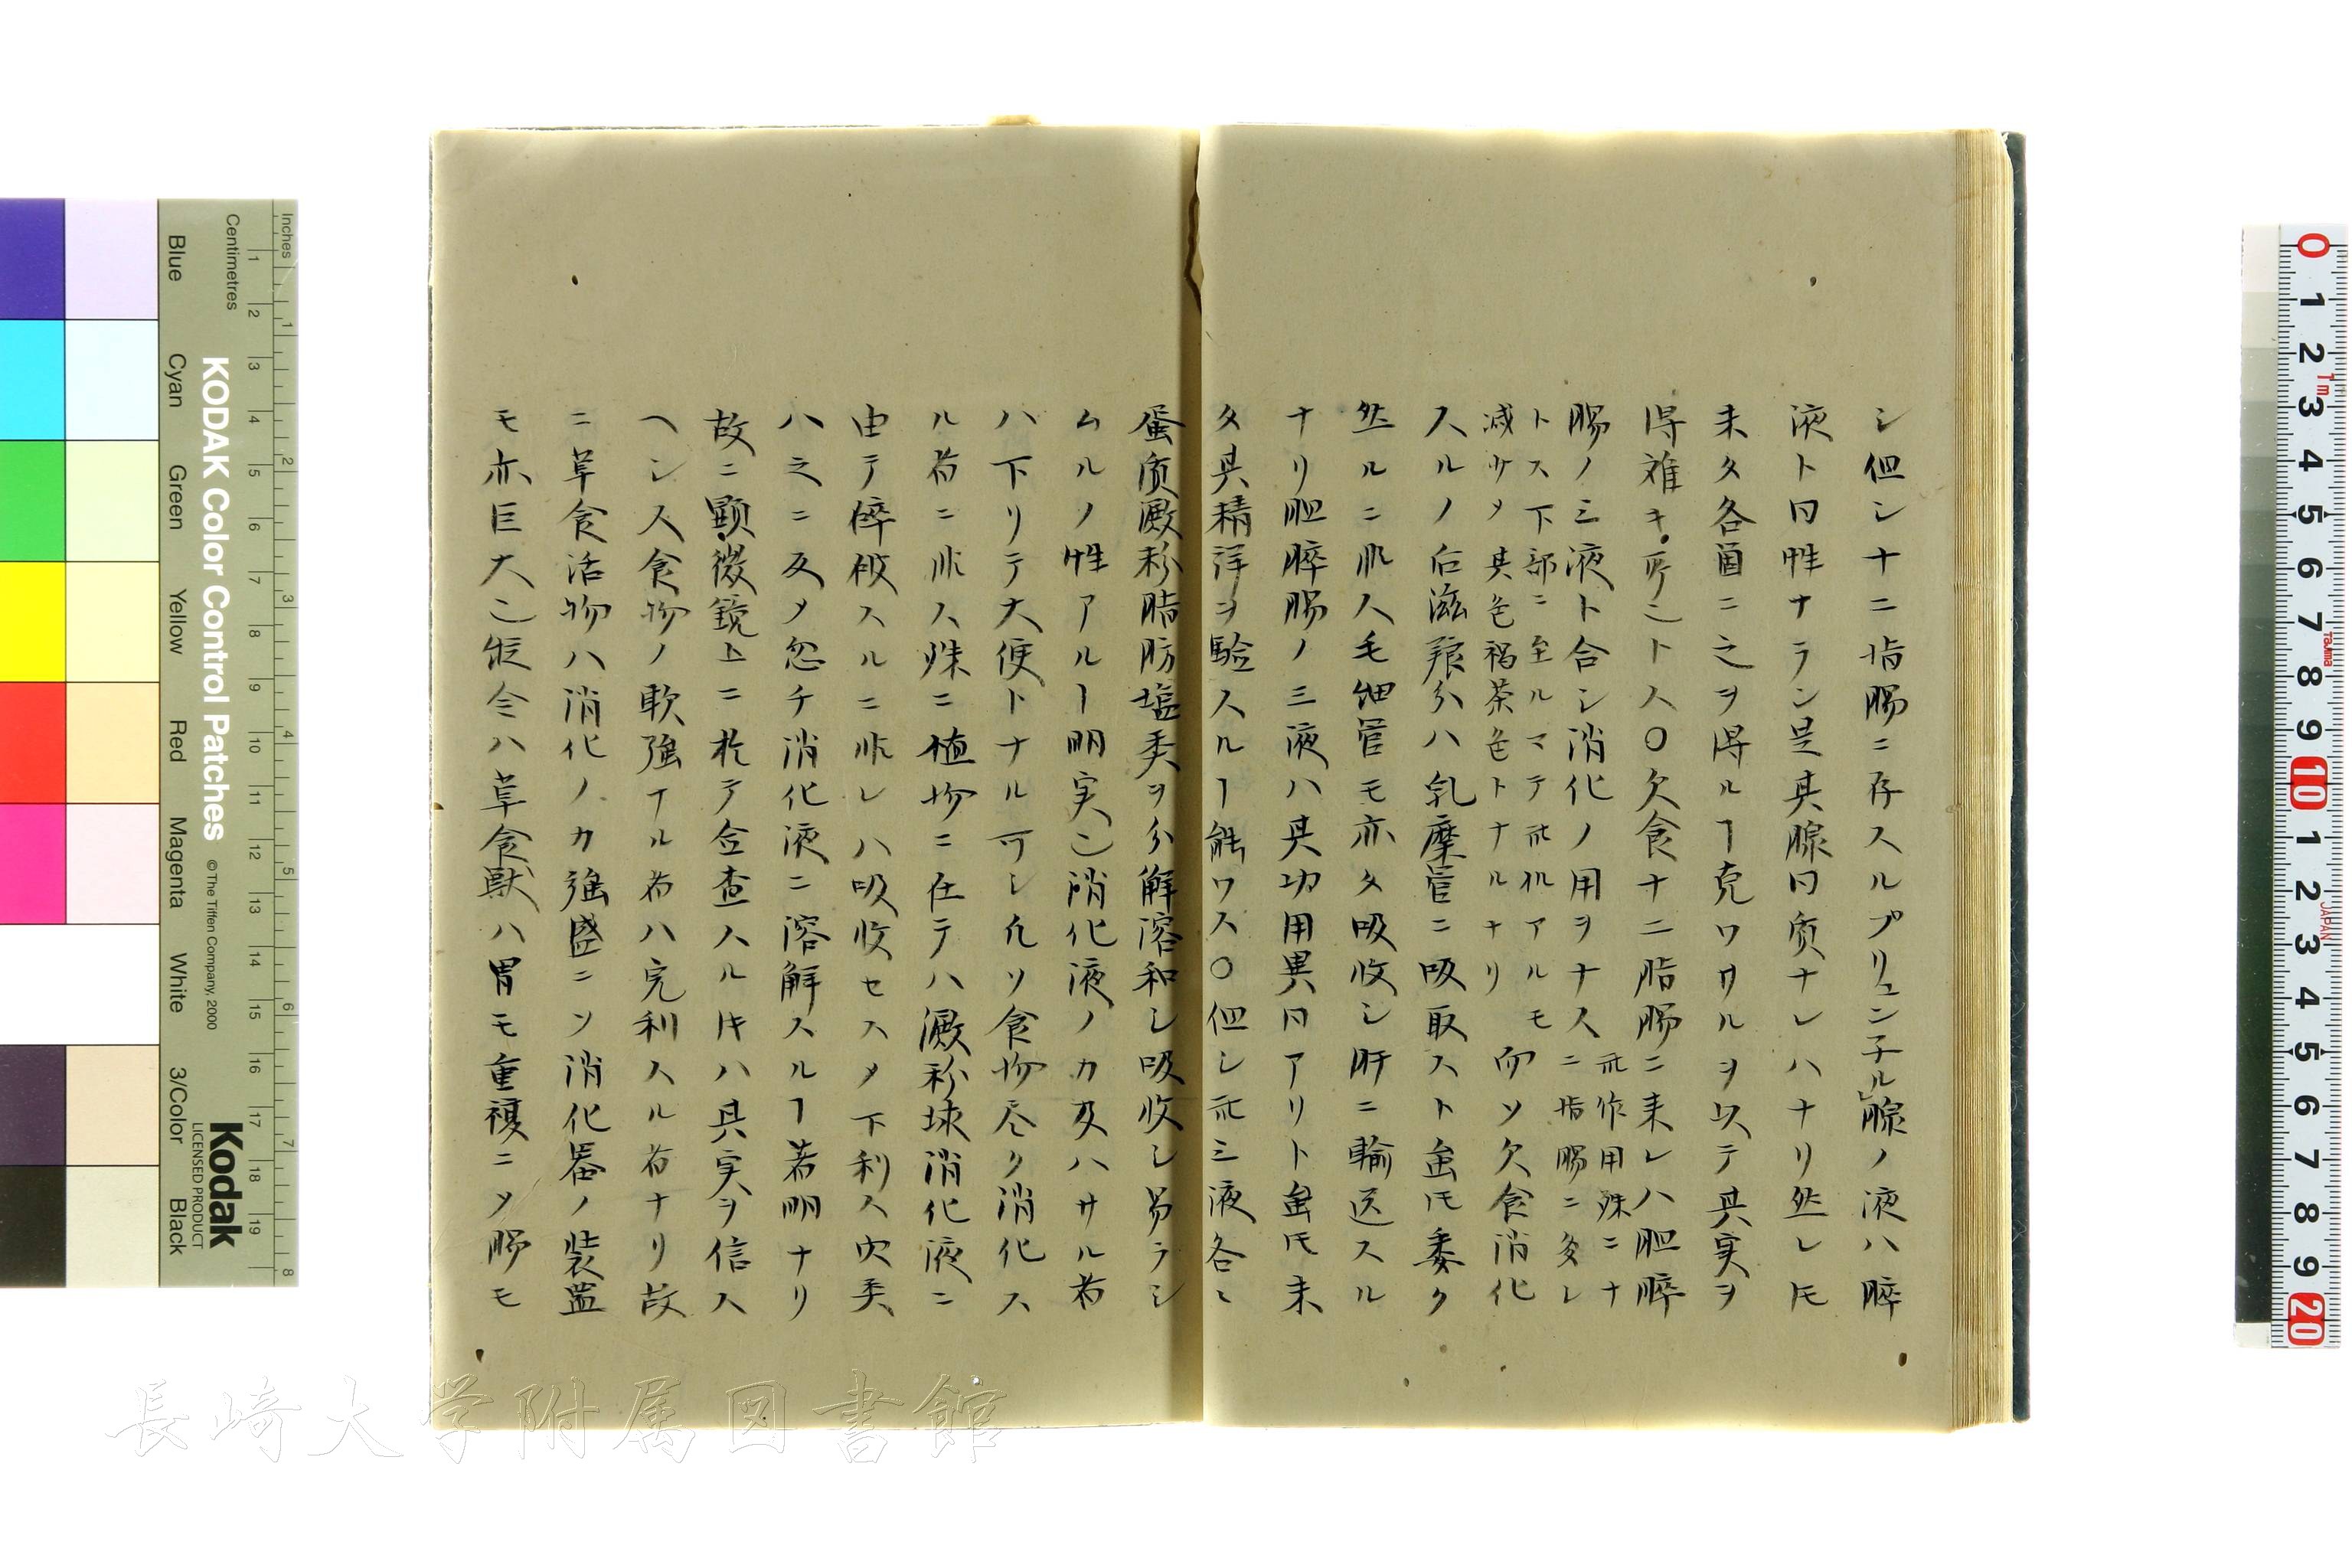 シ但シ十二指腸ニ存スルブリュンネル腺ノ液ハ膵
液ト同性ナラン是其腺同质ナレハナリ然レ𪜈
未タ各箇ニ之ヲ得ルヿ克ワサルヲ以テ其実ヲ
得難キ所ニトス〇欠食十二指腸ニ来レハ胆膵
腸ノ三液ト合シ消化ノ用ヲナス
示作用殊ニナ
ニ指腸ニ多シ
トス下部ニ至ルマテ示机アルモ
减少メ其色褐茶色トナルナリ
而ソ欠食消化
スルノ后滋粮分ハ乳糜管ニ吸取スト虽𪜈委ク
然ルニ非ス毛細管モ亦タ吸收シ肝ニ輸送スル
ナリ胆膵腸ノ三液ハ其功用異同アリト虽𪜈未
タ其精详ヲ験スルヿ能ワス〇但シ示三液各〻
蛋质澱粉脂肪塩类ヲ分解溶和シ吸收シ易ラシ
ムルノ性アルヿ明実也消化液ノ力及ハサル者
ハ下リテ大便トナル可シ凡ソ食物尽ク消化ス
ル者ニ非ス殊ニ植物ニ在テハ澱粉球消化液ニ
由テ砕破スルニ非レハ吸收セスメ下利ス肉类
ハ之ニ反メ忽チ消化液ニ溶解スルヿ著明ナリ
故ニ顕微鏡上ニ於テ佥查スル𪜈ハ其実ヲ信ス
ヘシ人食物ノ軟強アル者ハ完利スル者ナリ故
ニ草食活物ハ消化ノ力強盛ニソ消化器ノ装置
モ亦巨大也仮令ハ草食獣ハ胃モ重複ニメ腸モ
Inches
Centimetres
KODAK Color Control Patches
© The Tiffen Company, 2000
Kodak
LICENSED PRODUCT
Blue
Cyan
Green
Yellow
Red
Magenta
White
3/Color
Black
長崎大学附属図書館